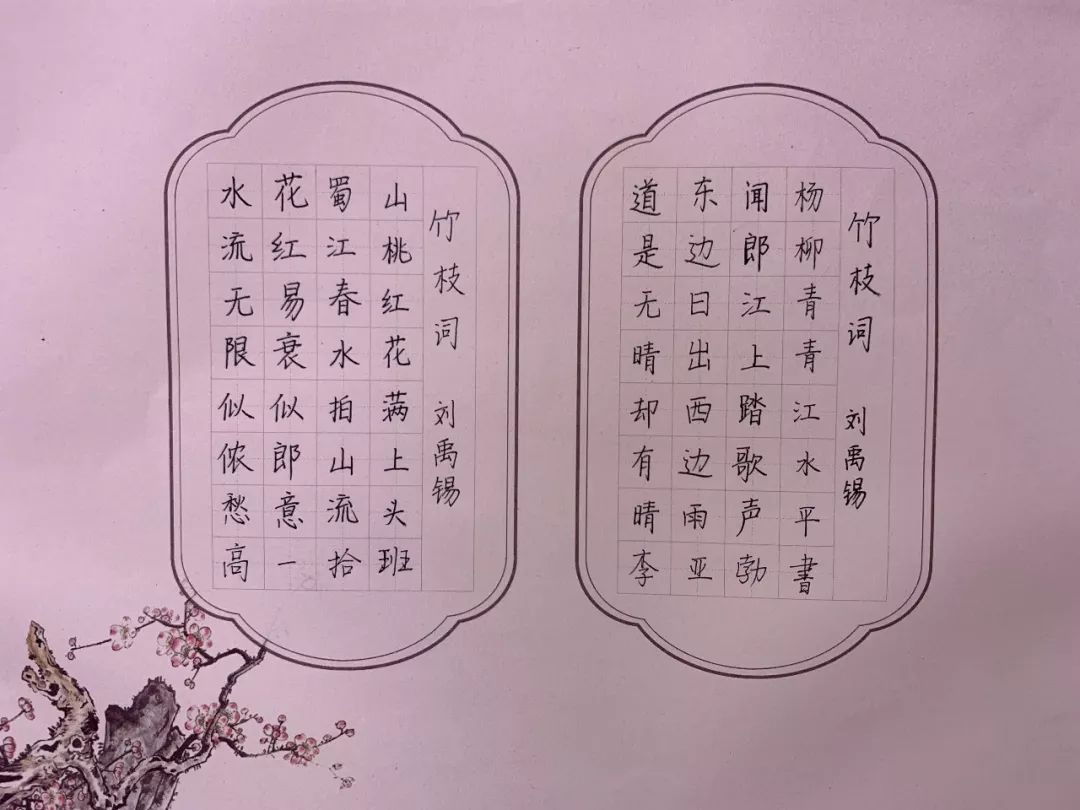 竹枝词 刘禹锡
杨柳青青江水平
闻郎江上踏歌声
东边日出西边雨
道是无晴却有晴
李亚勃書
竹枝词 刘禹锡
山桃红花满上头
蜀江春水拍山流
花红易衰似郎意
水流无限似侬愁
高一拾班